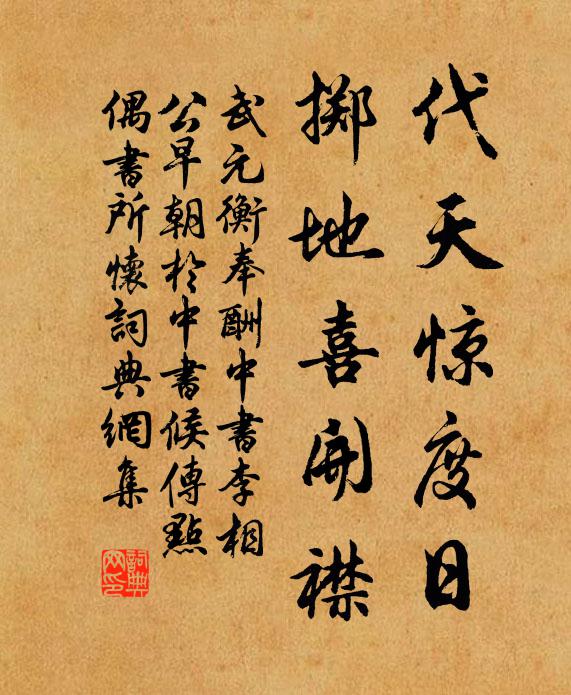 代天惊度日
掷地喜開襟
武元衡奉酬中書李相
公早朝於中書候傳點
偶書所懷詞典網集
詞典
网印